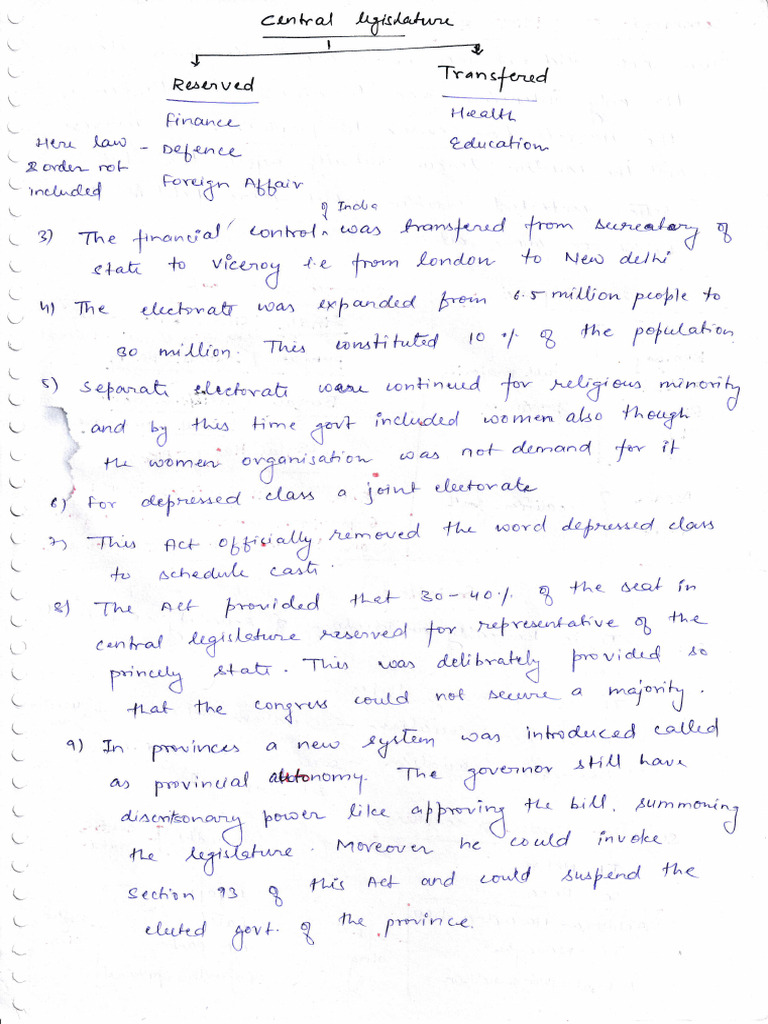 Central legislature
Reserved
Transfered
Finance
Health
Here law - Defence
Education
& order not
included
Foreign Affair
of India
3) The financial control ^ was transfered from secreatory of
state to viceroy i.e from london to New delhi
4) The electorate was expanded from 6.5 million people to
30 million. This constituted 10 % of the population
5) Separate electorate were continued for religious minority
and by this time govt included women also though
the women organisation was not demand for it
6) for depressed class a joint electorate
7) This Act officially removed the word depressed class
to schedule caste.
8) The Act provided that 30-40% of the seat in
central legislature reserved for representative of the
princely state. This was delibrately provided so
that the congress could not secure a majority.
9) In provinces a new system was introduced called
as provincial autonomy. The governor still have
discritionary power like approving the bill, summoning
the legislature. Moreover he could invoke
Section 93 of this Act and could suspend the
elected govt. of the province.